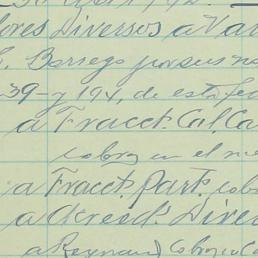 ores Diversos a Var
S. Borrego por sus no
39- y 194, de esta fec
a Fracct. Cal. Ca
cobro en el me
a Fracct. part. cobr
a Acreed. Diver
a Reynaud cobro